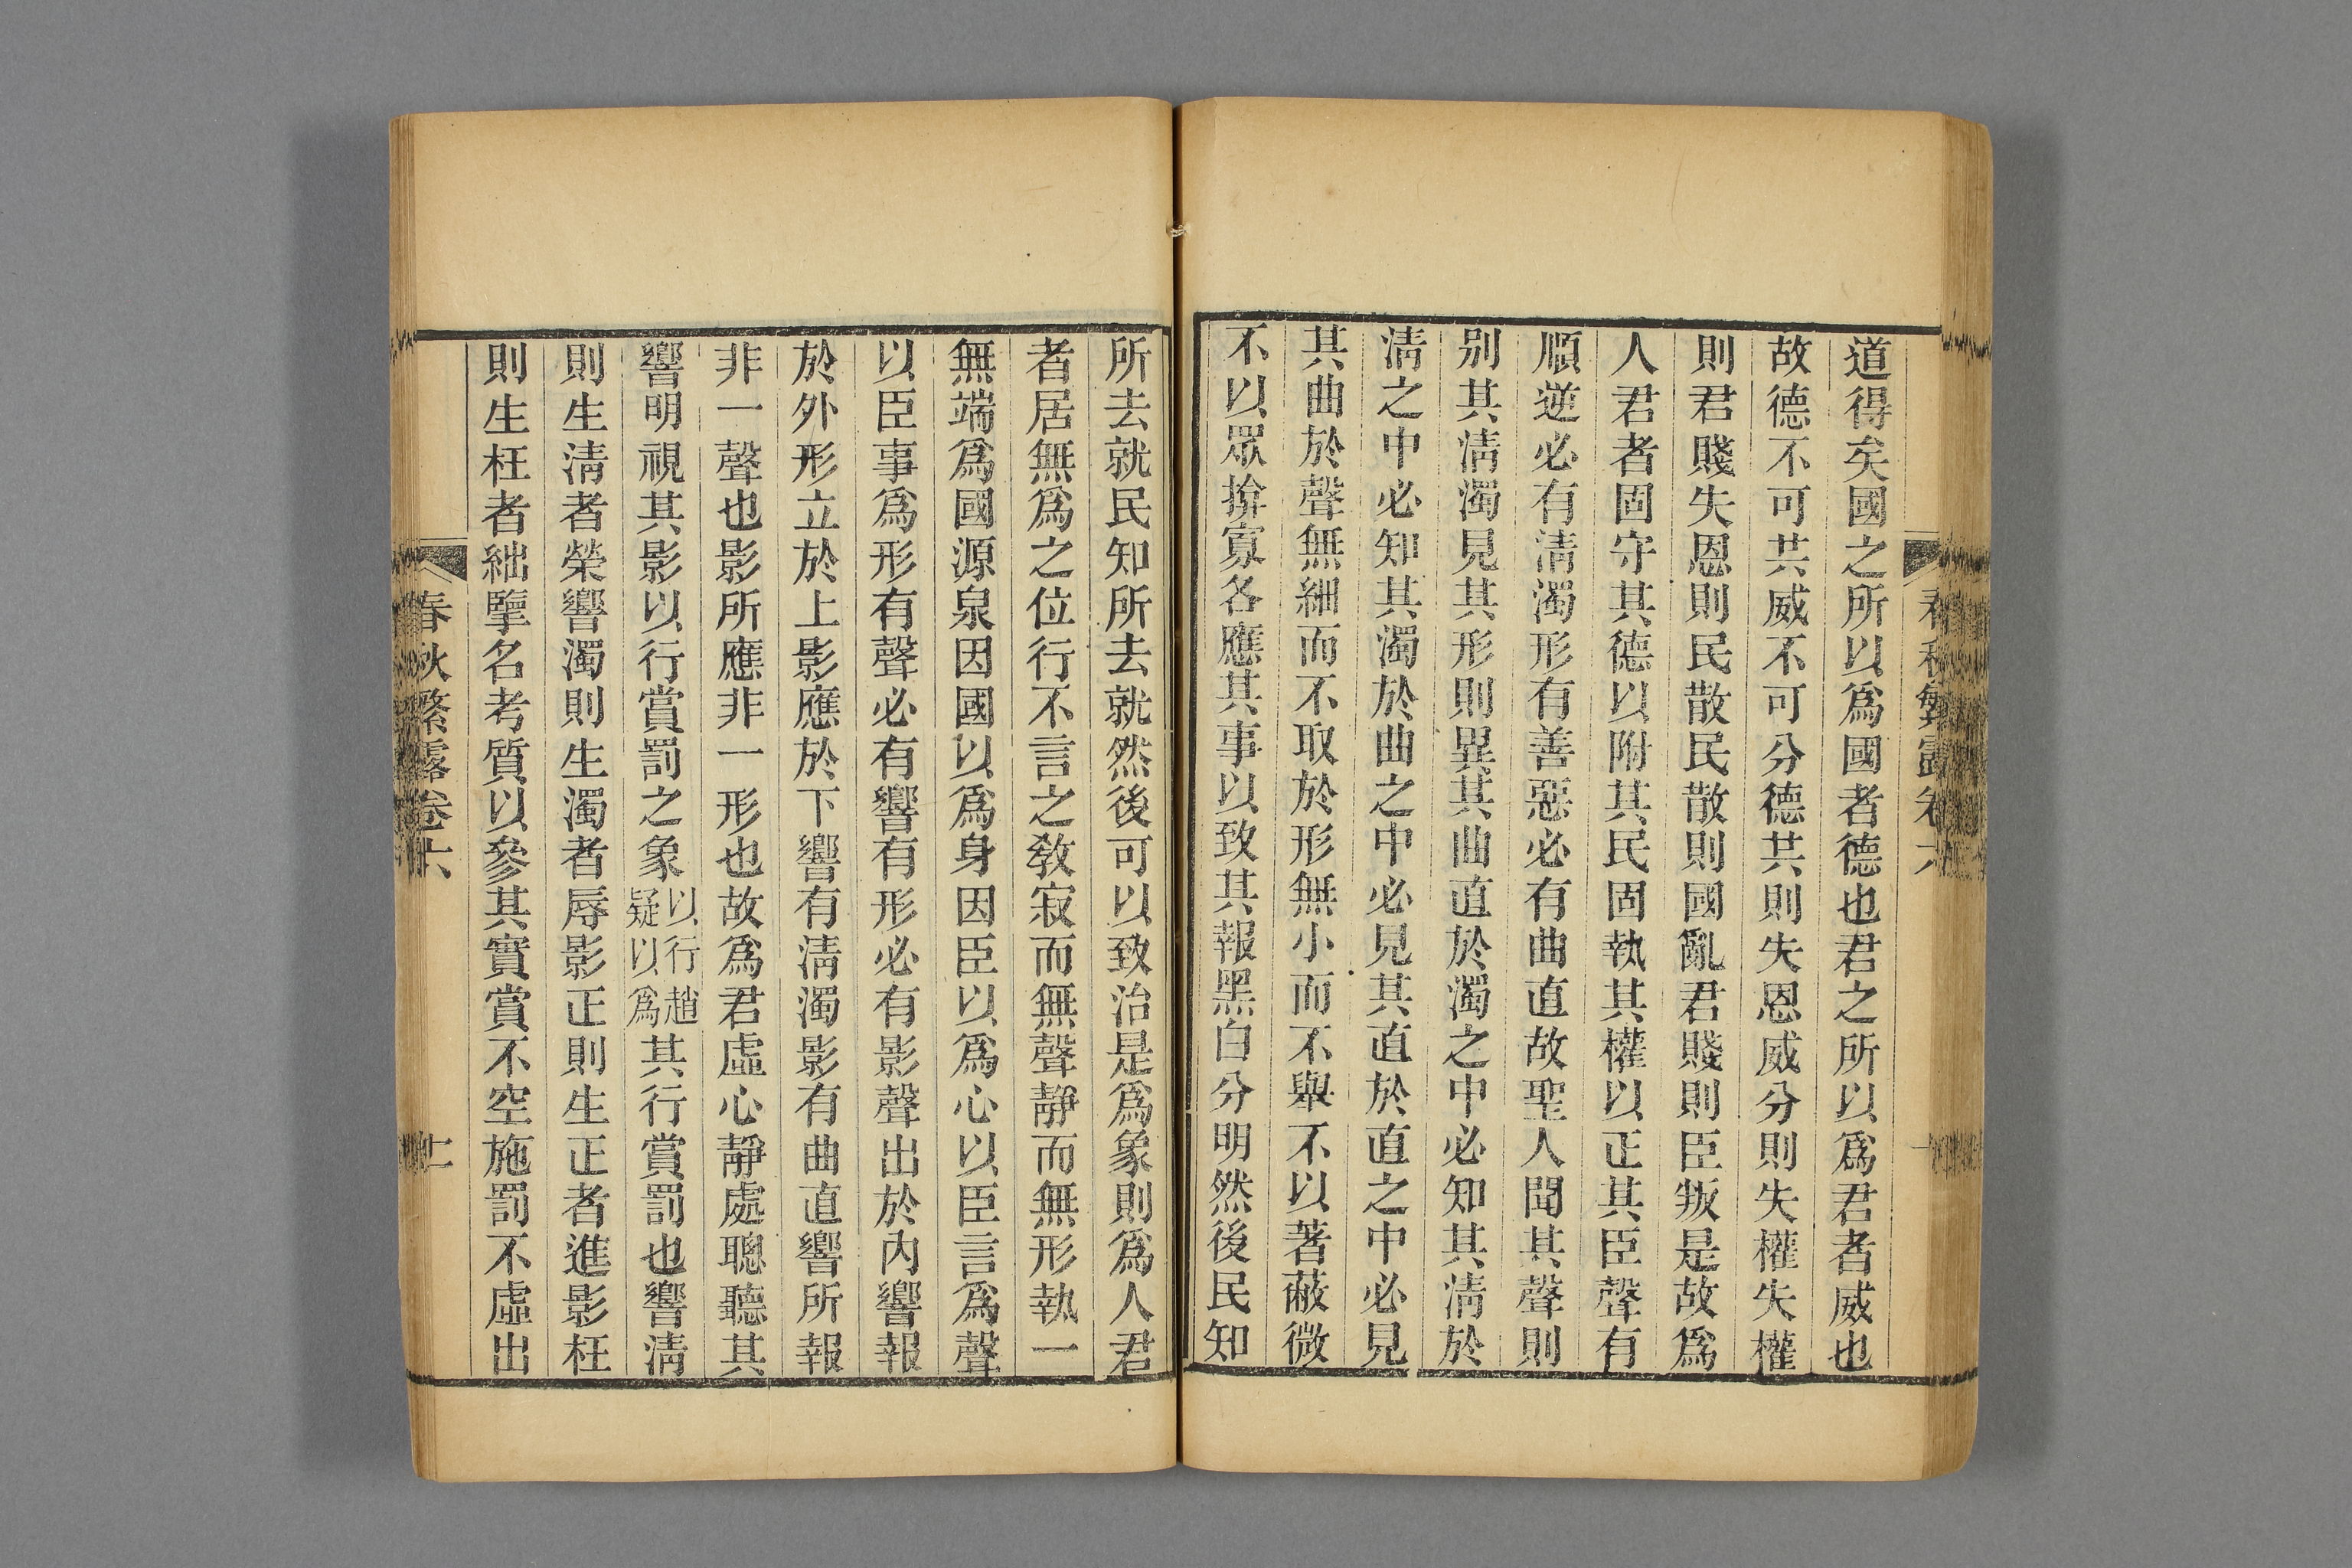 道得矣國之所以爲國者德也君之所以爲君者威也
故德不可共威不可分德共則失恩威分則失權失權
則君賤失恩則民散民散則國亂君賤則臣叛是故爲
人君者固守其德以附其民固執其權以正其臣聲有
順逆必有淸濁形有善惡必有曲直故聖人聞其聲則
别其淸濁見其形則異其曲直於濁之中必知其淸於
淸之中必知其濁於曲之中必見其直於直之中必見
其曲於聲無細而不取於形無小而不舉不以著蔽微
不以眾揜寡各應其事以致其報黑白分明然後民知
所去就民知所去就然後可以致治是爲象則爲人君
者居無爲之位行不言之敎寂而無聲靜而無形執一
無端爲國源泉因國以爲身因臣以爲心以臣言爲聲
以臣事爲形有聲必有響有形必有影聲出於內響報
於外形立於上影應於下響有淸濁影有曲直響所報
非一聲也影所應非一形也故爲君虛心靜處聰聽其
響明視其影以行賞罰之象以行趙疑以爲其行賞罰也響淸
則生淸者榮響濁則生濁者辱影正則生正者進影枉
則生枉者絀擥名考質以參其實賞不空施罰不虛出
春秋繁露卷六